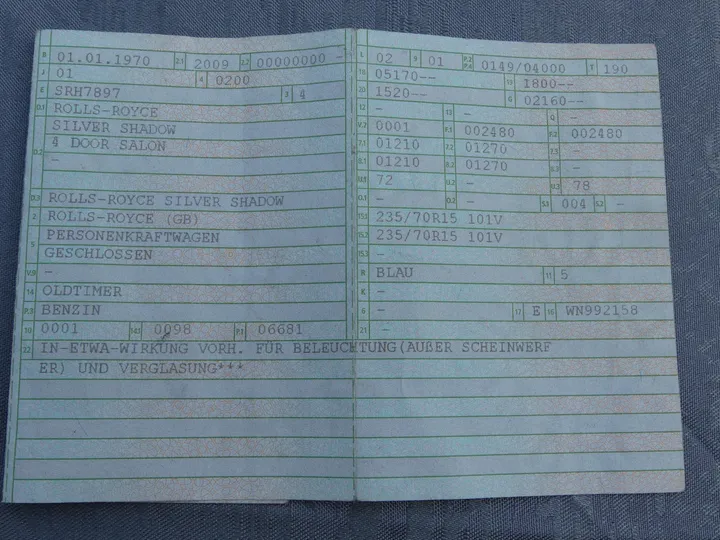 B 01.01.1970 2.1 2009 2.2 00000000 -
J 01 4 0200
E SRH7897 3 4
D.1 ROLLS-ROYCE
SILVER SHADOW
D.2 4 DOOR SALON
-
D.3 ROLLS-ROYCE SILVER SHADOW
2 ROLLS-ROYCE (GB)
5 PERSONENKRAFTWAGEN
GESCHLOSSEN
V.9 -
14 OLDTIMER
P.3 BENZIN
10 0001 14.1 0098 P.1 06681
22 IN-ETWA-WIRKUNG VORH. FÜR BELEUCHTUNG(AUßER SCHEINWERF
ER) UND VERGLASUNG***
L 02 9 01 P.2 P.4 0149/04000 T 190
18 05170-- 19 1800--
20 1520-- G 02160--
12 - 13 - Q -
V.7 0001 F.1 002480 F.2 002480
7.1 01210 7.2 01270 7.3 -
8.1 01210 8.2 01270 8.3 -
U.1 72 U.2 - U.3 78
O.1 - O.2 - S.1 004 S.2 -
15.1 235/70R15 101V
15.2 235/70R15 101V
15.3 -
R BLAU 11 5
K -
6 - 17 E 16 WN992158
21 -